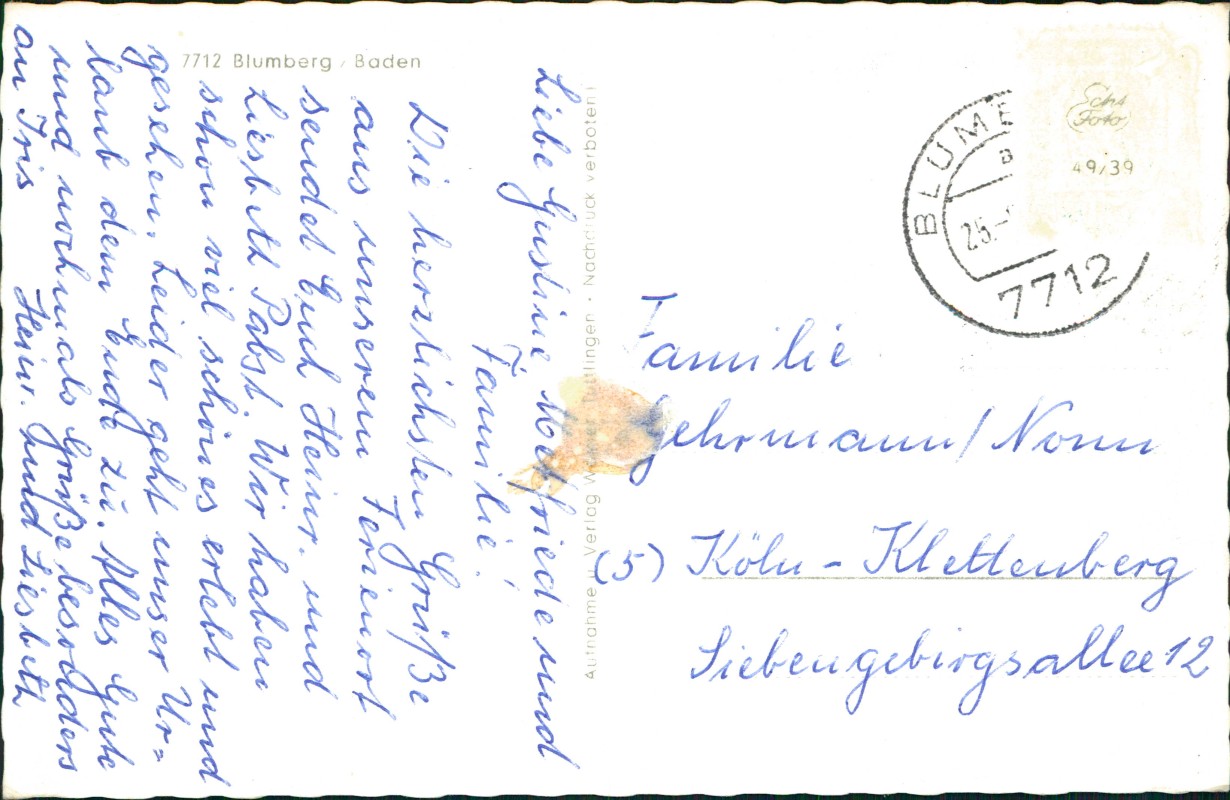 7712 Blumberg / Baden
Liebe Gustine Mefriede und
Familie!
Die herzlichsten Grüße
aus unserem Ferienort
sendet Euch Heinr. und
Liesbeth Pabst. Wir haben
schon viel schönes erlebt und
gesehen. Leider geht unser Ur=
laub dem Ende zu. Alles Gute
und nochmals Grüße besonders
an Iris Heinr. und Liesbeth
Aufnahme u. Verlag Tuttlingen · Nachdruck verboten!
BLUMB
25.
7712
Schö
Foto
49/39
Familie
Gehrmann / Nonn
(5) Köln - Klettenberg
Siebengebirgsallee 12